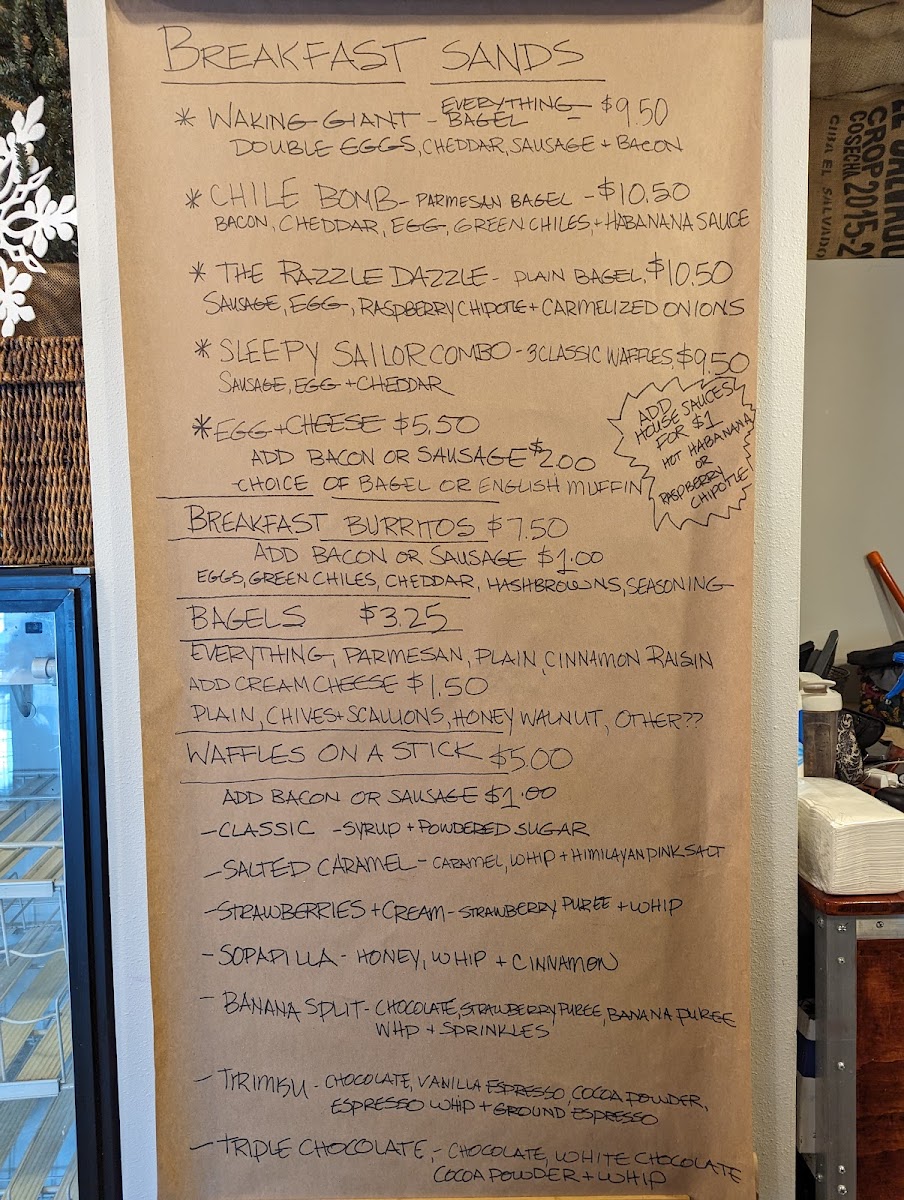 BREAKFAST SANDS
* WAKING GIANT - EVERYTHING BAGEL - $9.50
DOUBLE EGGS, CHEDDAR, SAUSAGE + BACON
* CHILE BOMB - PARMESAN BAGEL - $10.50
BACON, CHEDDAR, EGG, GREEN CHILES, + HABANANA SAUCE
* THE RAZZLE DAZZLE - PLAIN BAGEL, $10.50
SAUSAGE, EGG, RASPBERRY CHIPOTLE + CARMELIZED ONIONS
* SLEEPY SAILOR COMBO - 3 CLASSIC WAFFLES, $9.50
SAUSAGE, EGG + CHEDDAR
* EGG + CHEESE $5.50
ADD BACON OR SAUSAGE $2.00
- CHOICE OF BAGEL OR ENGLISH MUFFIN
ADD
HOUSE SAUCES!
FOR $1
HOT HABANANA
OR
RASPBERRY
CHIPOTLE
BREAKFAST BURRITOS $7.50
ADD BACON OR SAUSAGE $1.00
EGGS, GREEN CHILES, CHEDDAR, HASHBROWNS, SEASONING
BAGELS $3.25
EVERYTHING, PARMESAN, PLAIN, CINNAMON RAISIN
ADD CREAM CHEESE $1.50
PLAIN, CHIVES + SCALLIONS, HONEY WALNUT, OTHER??
WAFFLES ON A STICK $5.00
ADD BACON OR SAUSAGE $1.00
- CLASSIC - SYRUP + POWDERED SUGAR
- SALTED CARAMEL - CARAMEL, WHIP + HIMILAYAN PINK SALT
- STRAWBERRIES + CREAM - STRAWBERRY PUREE + WHIP
- SOPAPILLA - HONEY, WHIP + CINNAMON
- BANANA SPLIT - CHOCOLATE, STRAWBERRY PUREE, BANANA PUREE
WHIP + SPRINKLES
- TIRIMISU - CHOCOLATE, VANILLA ESPRESSO, COCOA POWDER,
ESPRESSO WHIP + GROUND ESPRESSO
- TRIPLE CHOCOLATE, - CHOCOLATE, WHITE CHOCOLATE
COCOA POWDER + WHIP
CROP 2015-2
COSECHA